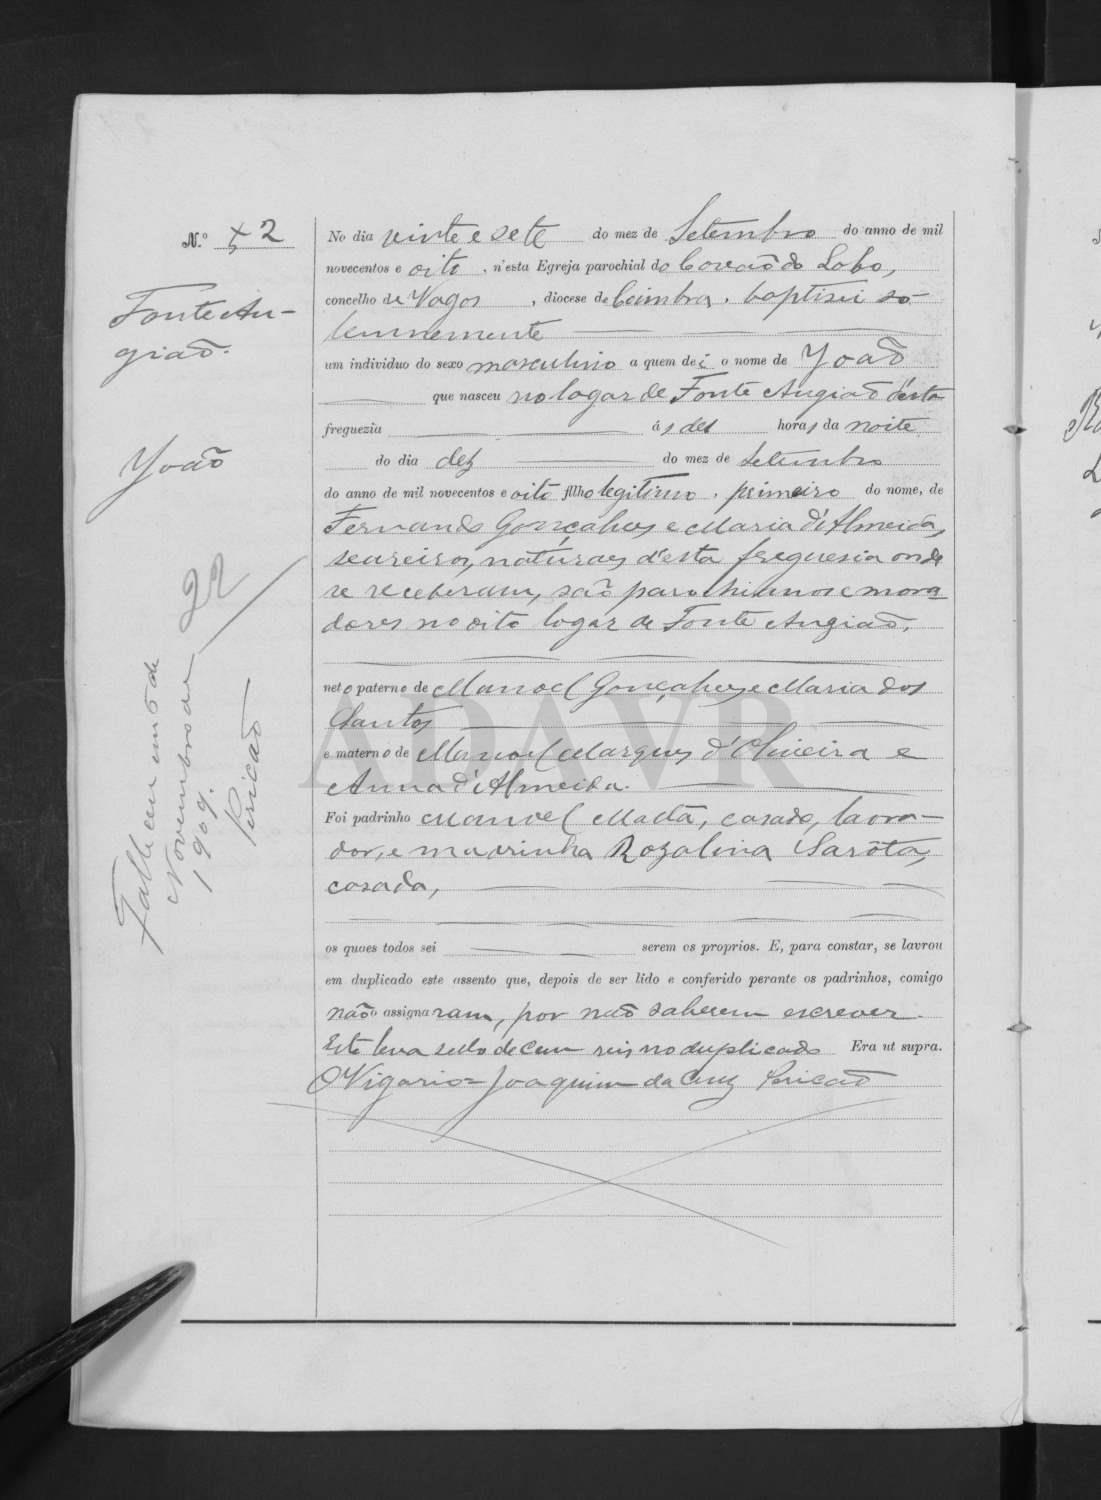 N.º 52
Fonte An-
gião.
João
22
Falleceu em 5 de
Novembro de
1909.
Pericão
No dia vinte e sete do mez de Setembro do anno de mil
novecentos e oito, n'esta Egreja parochial do Covão do Lobo,
concelho de Vagos, diocese de Coimbra, baptisei so-
lemnemente
um individuo do sexo masculino a quem dei o nome de João
que nasceu no logar de Fonte Angião d'esta
freguezia ás dez horas da noite
do dia dez do mez de Setembro
do anno de mil novecentos e oito filho legitimo, primeiro do nome, de
Fernando Gonçalves e Maria d'Almeida,
seareiros, naturaes d'esta freguesia onde
se receberam, são parochianos e mora-
dores no dito logar de Fonte Angião,
neto paterno de Manoel Gonçalves e Maria dos
Santos
e materno de Manoel Marques d'Oliveira e
Anna d'Almeida.
Foi padrinho Manoel Matta, casado, lavra-
dor, e madrinha Rozalina Sarôta,
casada,
os quaes todos sei serem os proprios. E, para constar, se lavrou
em duplicado este assento que, depois de ser lido e conferido perante os padrinhos, comigo
não assignaram, por não saberem escrever.
Este leva sello de cem reis no duplicado Era ut supra.
O Vigario = Joaquim da Cruz Pericão
ADAVR